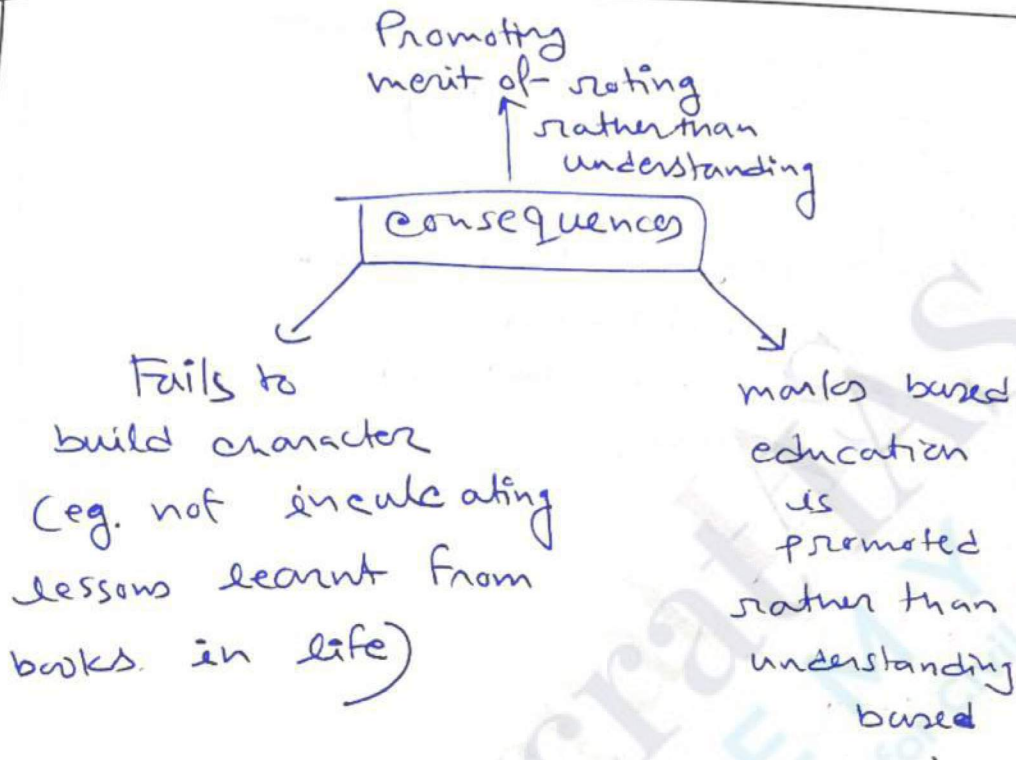 Promoting
merit of roting
rather than
understanding
consequences
Fails to
build character
(eg. not inculcating
lessons learnt from
books. in life)
marks based
education
is
promoted
rather than
understanding
based